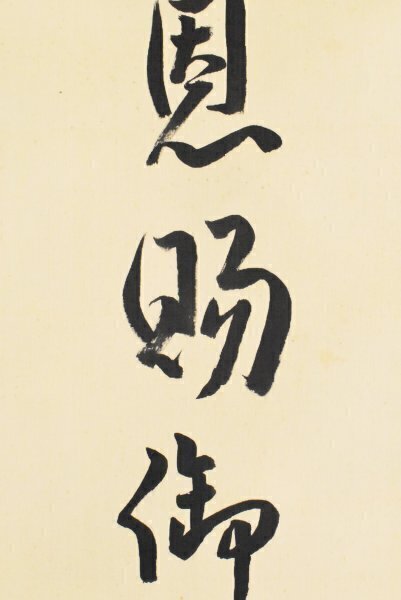 恩賜御